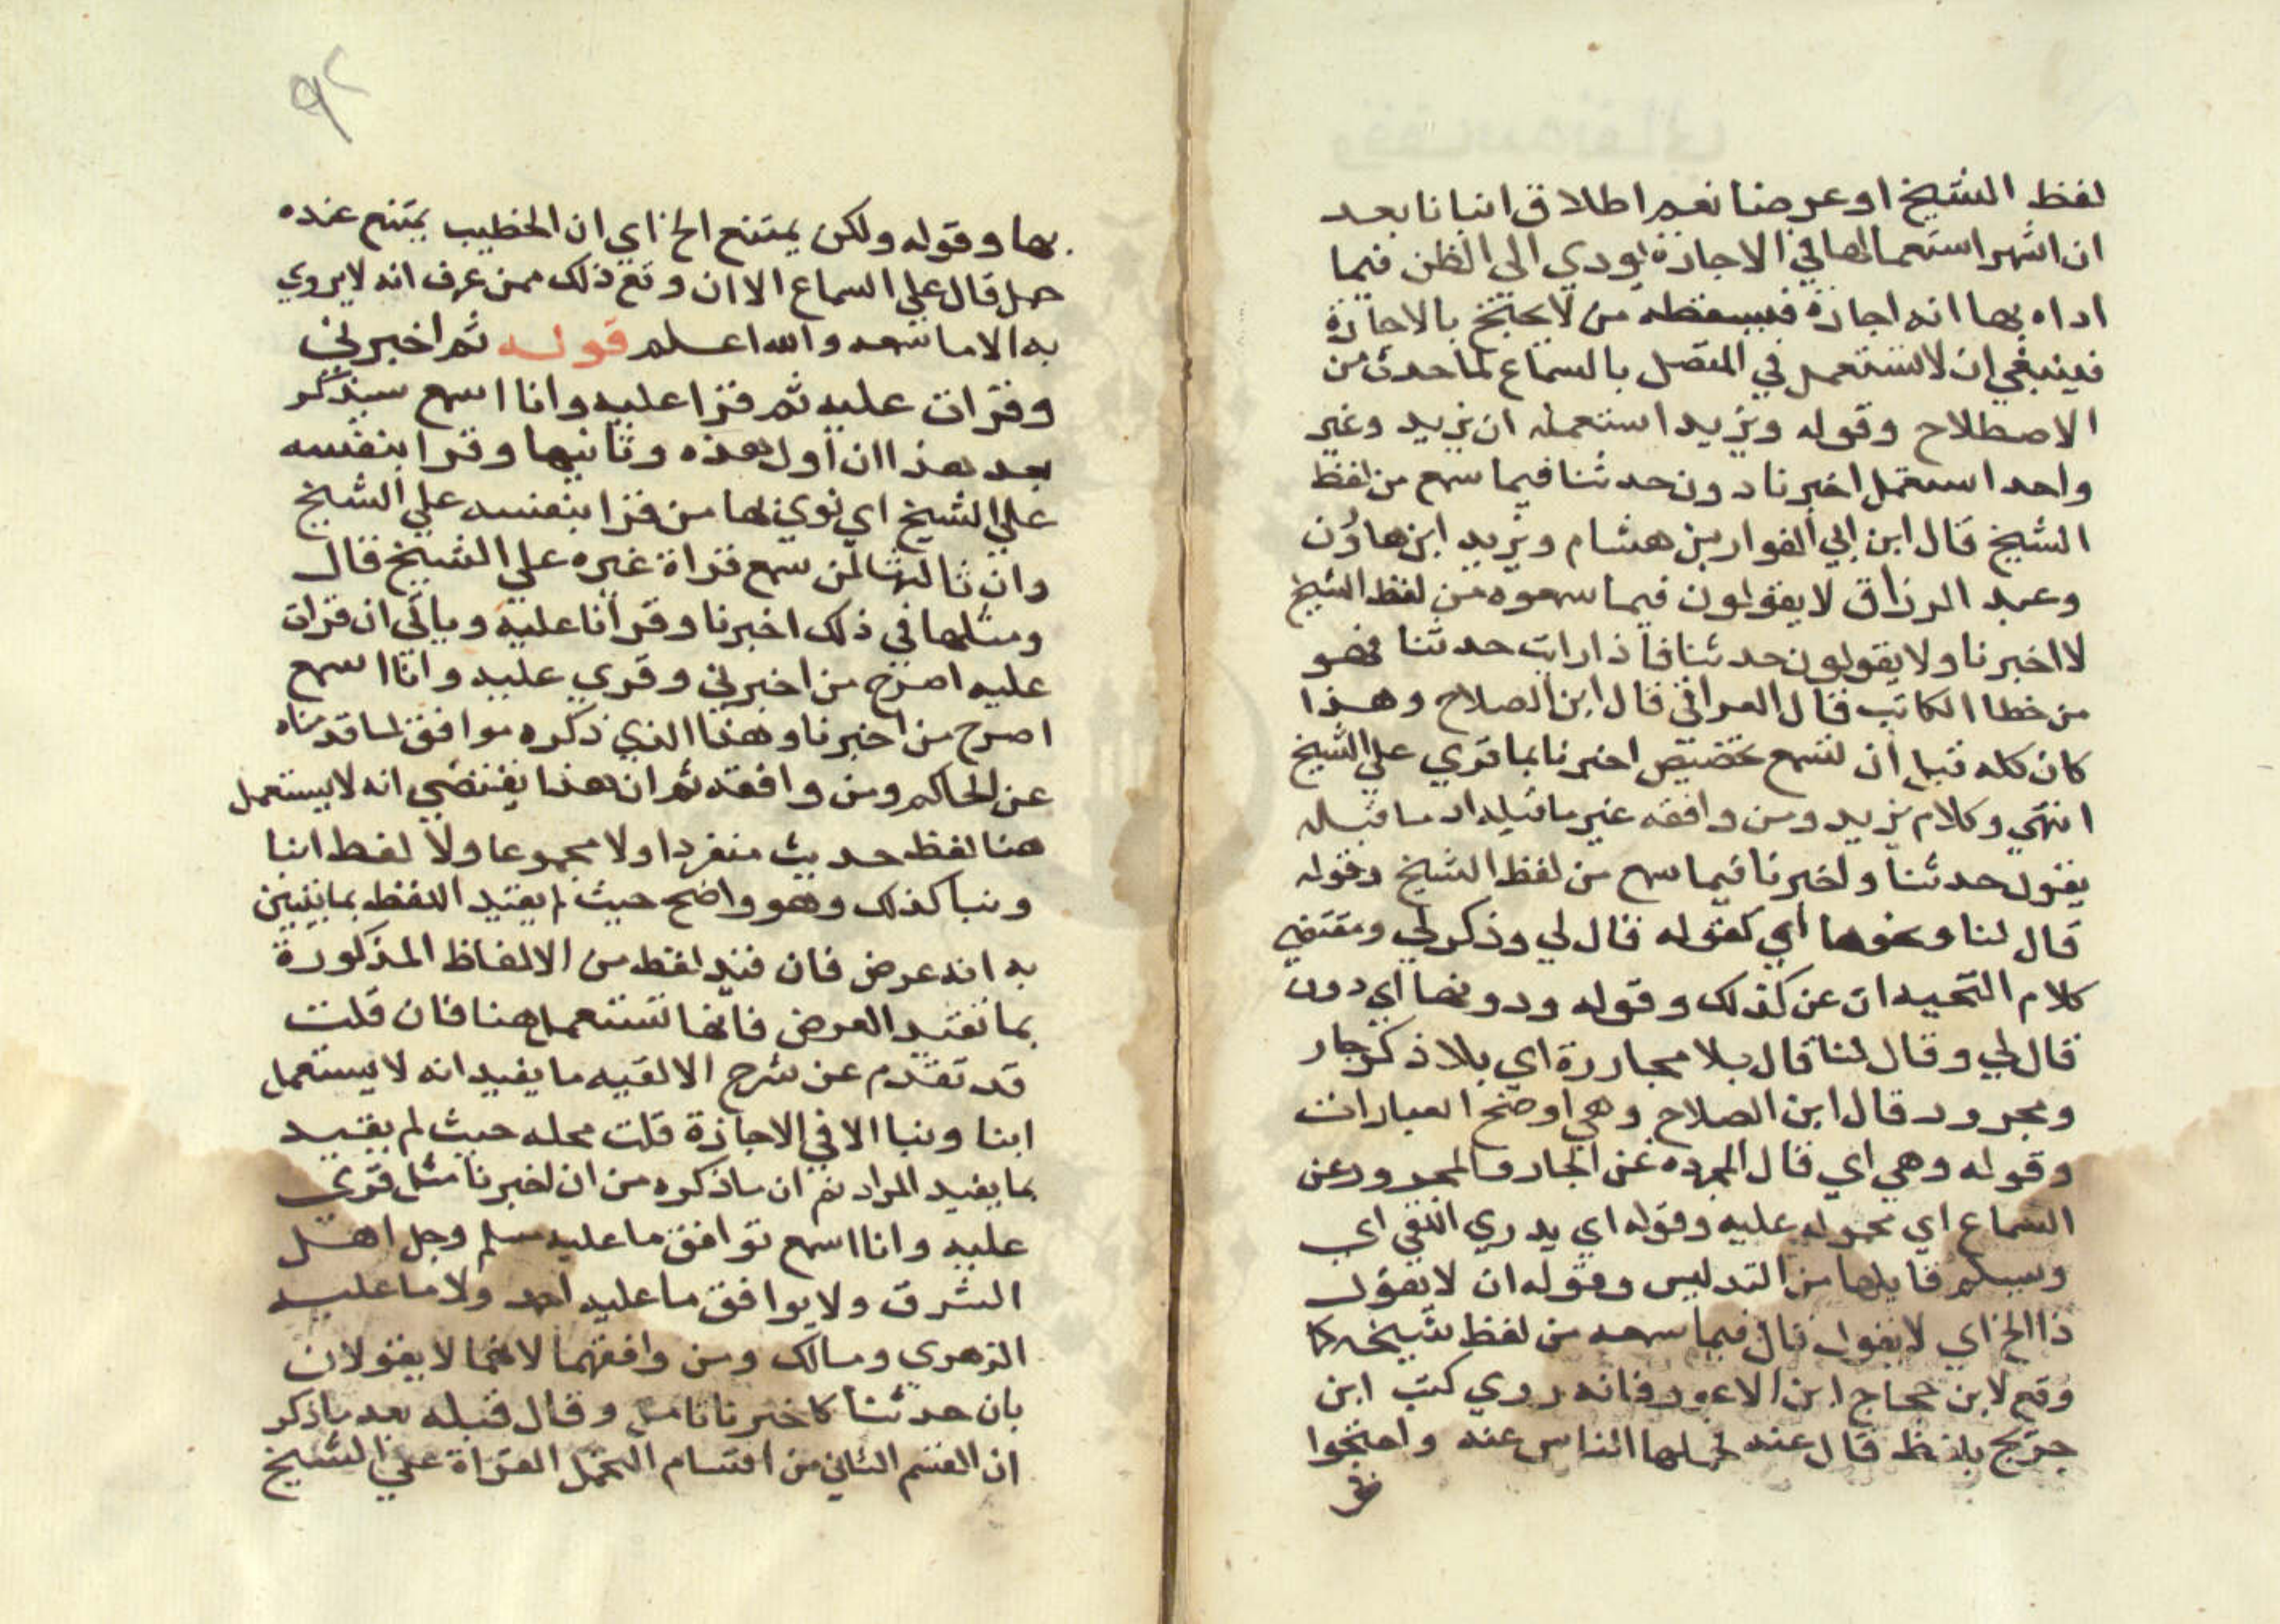 لفظ الشيخ او عرضنا نعم اطلاق انبانا بعد
ان اشهر استعمالها في الاجازة يودي الى الظن فيما
اداه بها انه اجازة فيسقطه من لا يحتج بالاجازة
فينبغي ان لا تستعمل في المتصل بالسماع لما حدث من
الاصطلاح وقوله ويزيد استعمله ان يزيد وغير
واحد استعمل اخبرنا دون حدثنا فيما سمع من لفظ
الشيخ قال ابن ابي الفوارس هشام ويزيد ابن هاون
وعبد الرزاق لا يقولون فيما سمعوه من لفظ الشيخ
لا اخبرنا ولا يقولون حدثنا فاذا رايت حدثنا فهو
من خطا الكاتب قال العراقي قال ابن الصلاح وهذا
كان كله قبل ان تسمع تخصيص اخبرنا بما قري علي الشيخ
انتهي وكلام يزيد ومن وافقه غير ما قبله اد ما قبله
يقول حدثنا واخبرنا فيما سمع من لفظ الشيخ وقوله
قال لنا ونحوها اي كقوله قال لي وذكر لي ومقتضي
كلام عن كذلك وقوله ودونها اي دون
قال لي وقال لنا قال بلا مجاررة اي بلا ذكر جار
ومجرور قال ابن الصلاح وهي اوضح العبارات
وقوله وهي اي قال المجرده عن الجار والمجرور عن
السماع اي محموله عليه وقوله اي يدري اللقي اي
وسلم قايلها من التدليس وقوله ان لا يقول
ذا الخ اي لا يقول قال فيما سمعه من لفظ شيخه كا
وقع لابن حجاج ابن الاعور فانه روي كتب ابن
جريج بلفظ قال عنه فحملها الناس عنه واحتجوا
بها وقوله ولكن يمتنع الخ اي ان الخطيب يمتنع عنده
حمل قال علي السماع الا ان وقع ذلك ممن عرف انه لا يروي
به الا ما سمعه والله اعلم قوله ثم اخبرني
وقرات عليه ثم قرا عليه وانا اسمع سيذكر
بعد هذا ان اول هذه وثانيها وقرا بنفسه
علي الشيخ اي نوي بها من قرا بنفسه علي الشيخ
وان ثالثها لمن سمع قراة غيره علي الشيخ قال
ومثلها في ذلك اخبرنا وقرانا عليه وياتي ان قرات
عليه اصرح من اخبرني وقري عليه وانا اسمع
اصرح من اخبرنا وهذا الذي ذكره موافق لما قدمناه
عن الحاكم ومن وافقه ثم ان هذا يقتضي انه لا يستعمل
هنا لفظ حديث منفردا ولا مجموعا ولا لفظ انبا
ونبا كذلك وهو واضح حيث لم يقيد اللفظ بما يتبين
به انه عرض فان قيد لفظ من الالفاظ المذكورة
بما تقيد العرض فانها تستعمل هنا فان قلت
قد تقدم عن شرح الالفيه ما يفيد انه لا يستعمل
انبا ونبا الا في الاجازة قلت محله حيث لم يقيد
بما يفيد المراد ثم ان ما ذكره من ان اخبرنا مثل قري
عليه وانا اسمع توافق ما عليه مسلم وجل اهل
الشرق ولا يوافق ما عليه احمد ولا ما عليه
الزهري ومالك ومن وافقهما لانهما لا يقولان
بان حدثنا كاخبرنا تامل وقال قبله بعد ما ذكر
ان القسم الثاني من اقسام التحمل القراة علي الشيخ